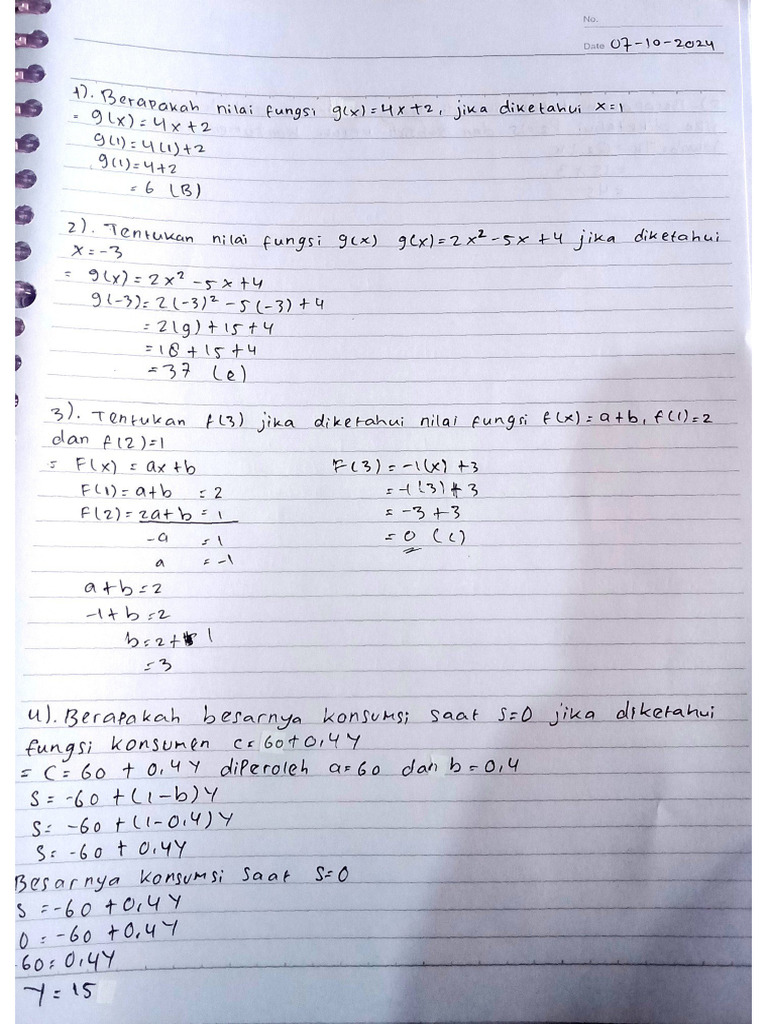 No.
Date 07-10-2024
1). Berapakah nilai fungsi g(x)=4x+2, jika diketahui x=1
= g(x)=4x+2
g(1)=4(1)+2
g(1)=4+2
=6 (B)
2). Tentukan nilai fungsi g(x) g(x)=2x²-5x+4 jika diketahui
x=-3
= g(x)=2x²-5x+4
g(-3)=2(-3)²-5(-3)+4
=2(9)+15+4
=18+15+4
=37 (e)
3). Tentukan f(3) jika diketahui nilai fungsi f(x)=a+b, f(1)=2
dan f(2)=1
= F(x)=ax+b
F(1)=a+b =2
F(2)=2a+b=1
-a =1
a =-1
a+b=2
-1+b=2
b=2+1
=3
F(3)=-1(x)+3
=-1(3)+3
=-3+3
=0 (c)
4). Berapakah besarnya konsumsi saat S=0 jika diketahui
fungsi konsumen C=60+0,4Y
= C=60+0,4Y diperoleh a=60 dan b=0,4
S=-60+(1-b)Y
S=-60+(1-0,4)Y
S=-60+0,4Y
Besarnya konsumsi saat S=0
S=-60+0,4Y
0=-60+0,4Y
60=0,4Y
Y=15